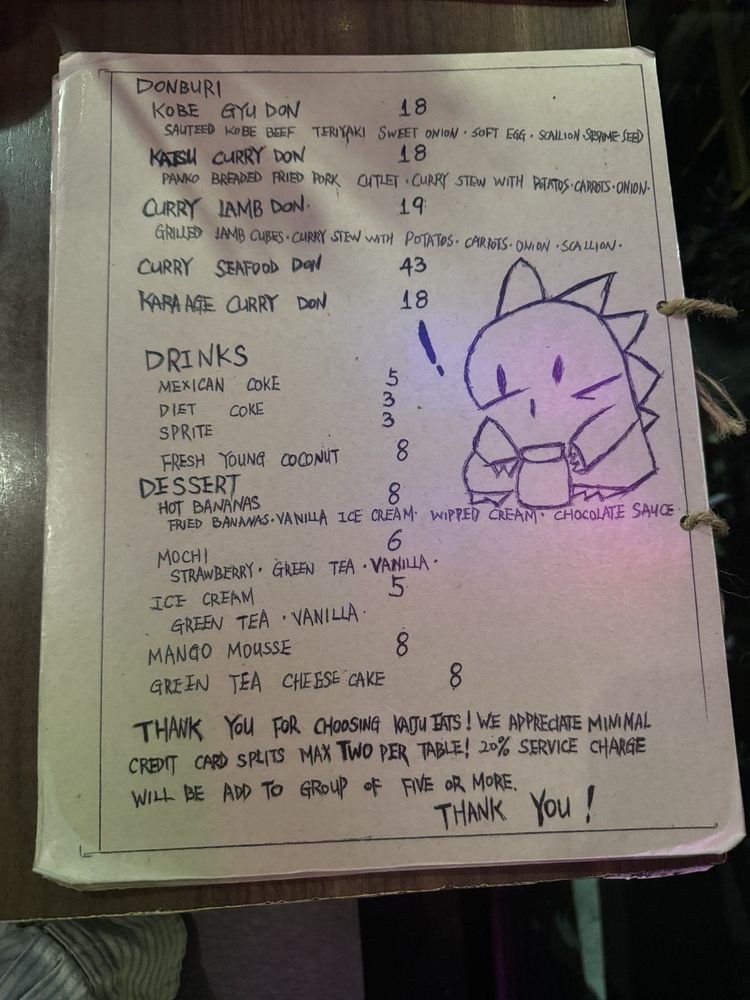 DONBURI
KOBE GYU DON 18
SAUTEED KOBE BEEF TERIYAKI SWEET ONION · SOFT EGG · SCALLION · SESAME SEED
KATSU CURRY DON 18
PANKO BREADED FRIED PORK CUTLET · CURRY STEW WITH POTATOS · CARROTS · ONION ·
CURRY LAMB DON · 19
GRILLED LAMB CUBES · CURRY STEW WITH POTATOS · CARROTS · ONION · SCALLION ·
CURRY SEAFOOD DON 43
KARAAGE CURRY DON 18
!
DRINKS
MEXICAN COKE 5
DIET COKE 3
SPRITE 3
FRESH YOUNG COCONUT 8
DESSERT
HOT BANANAS 8
FRIED BANANAS · VANILLA ICE CREAM · WIPPED CREAM · CHOCOLATE SAUCE ·
MOCHI 6
STRAWBERRY · GREEN TEA · VANILLA ·
ICE CREAM 5
GREEN TEA · VANILLA ·
MANGO MOUSSE 8
GREEN TEA CHEESE CAKE 8
THANK YOU FOR CHOOSING KAIJU EATS! WE APPRECIATE MINIMAL
CREDIT CARD SPLITS MAX TWO PER TABLE! 20% SERVICE CHARGE
WILL BE ADD TO GROUP OF FIVE OR MORE.
THANK YOU!